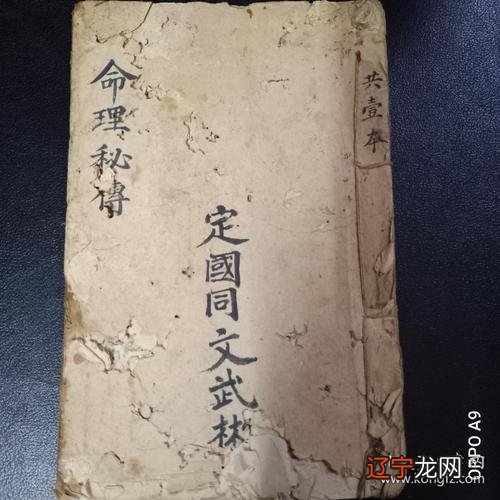 命理秘傳
共壹本
定國同文武林
OPPO A9
辽宁龙网
www.kongfz.com